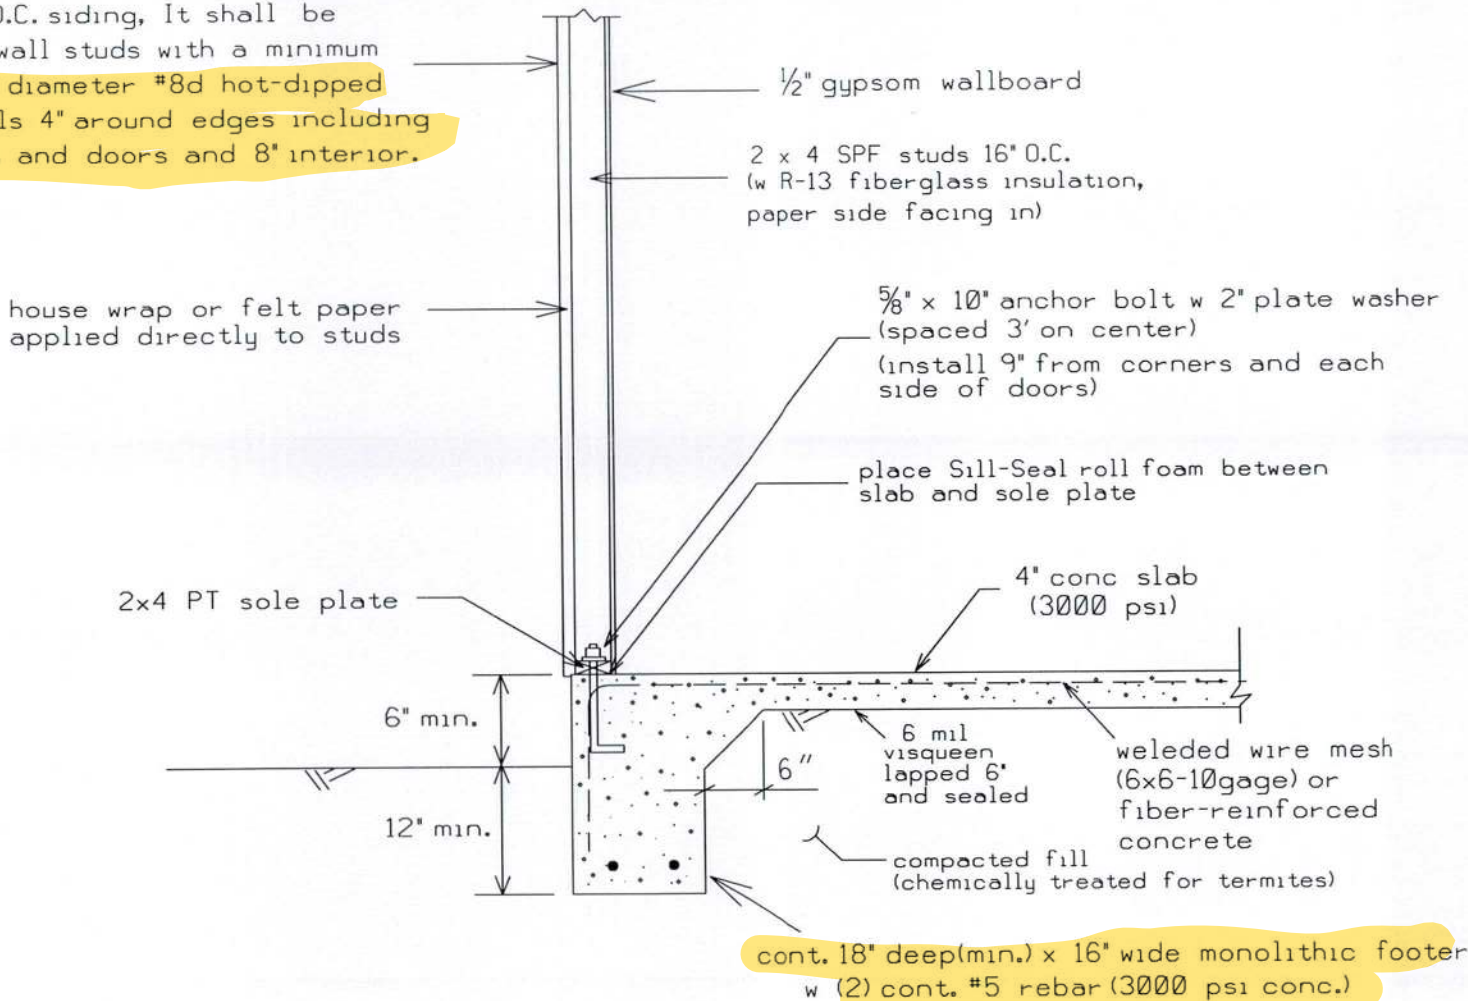 O.C. siding, It shall be
wall studs with a minimum
diameter #8d hot-dipped
ls 4" around edges including
and doors and 8" interior.
½" gypsom wallboard
2 x 4 SPF studs 16" O.C.
(w R-13 fiberglass insulation,
paper side facing in)
house wrap or felt paper
applied directly to studs
⅝" x 10" anchor bolt w 2" plate washer
(spaced 3' on center)
(install 9" from corners and each
side of doors)
place Sill-Seal roll foam between
slab and sole plate
4" conc slab
(3000 psi)
2x4 PT sole plate
6" min.
12" min.
6"
6 mil
visqueen
lapped 6"
and sealed
weleded wire mesh
(6x6-10gage) or
fiber-reinforced
concrete
compacted fill
(chemically treated for termites)
cont. 18" deep(min.) x 16" wide monolithic footer
w (2) cont. #5 rebar (3000 psi conc.)